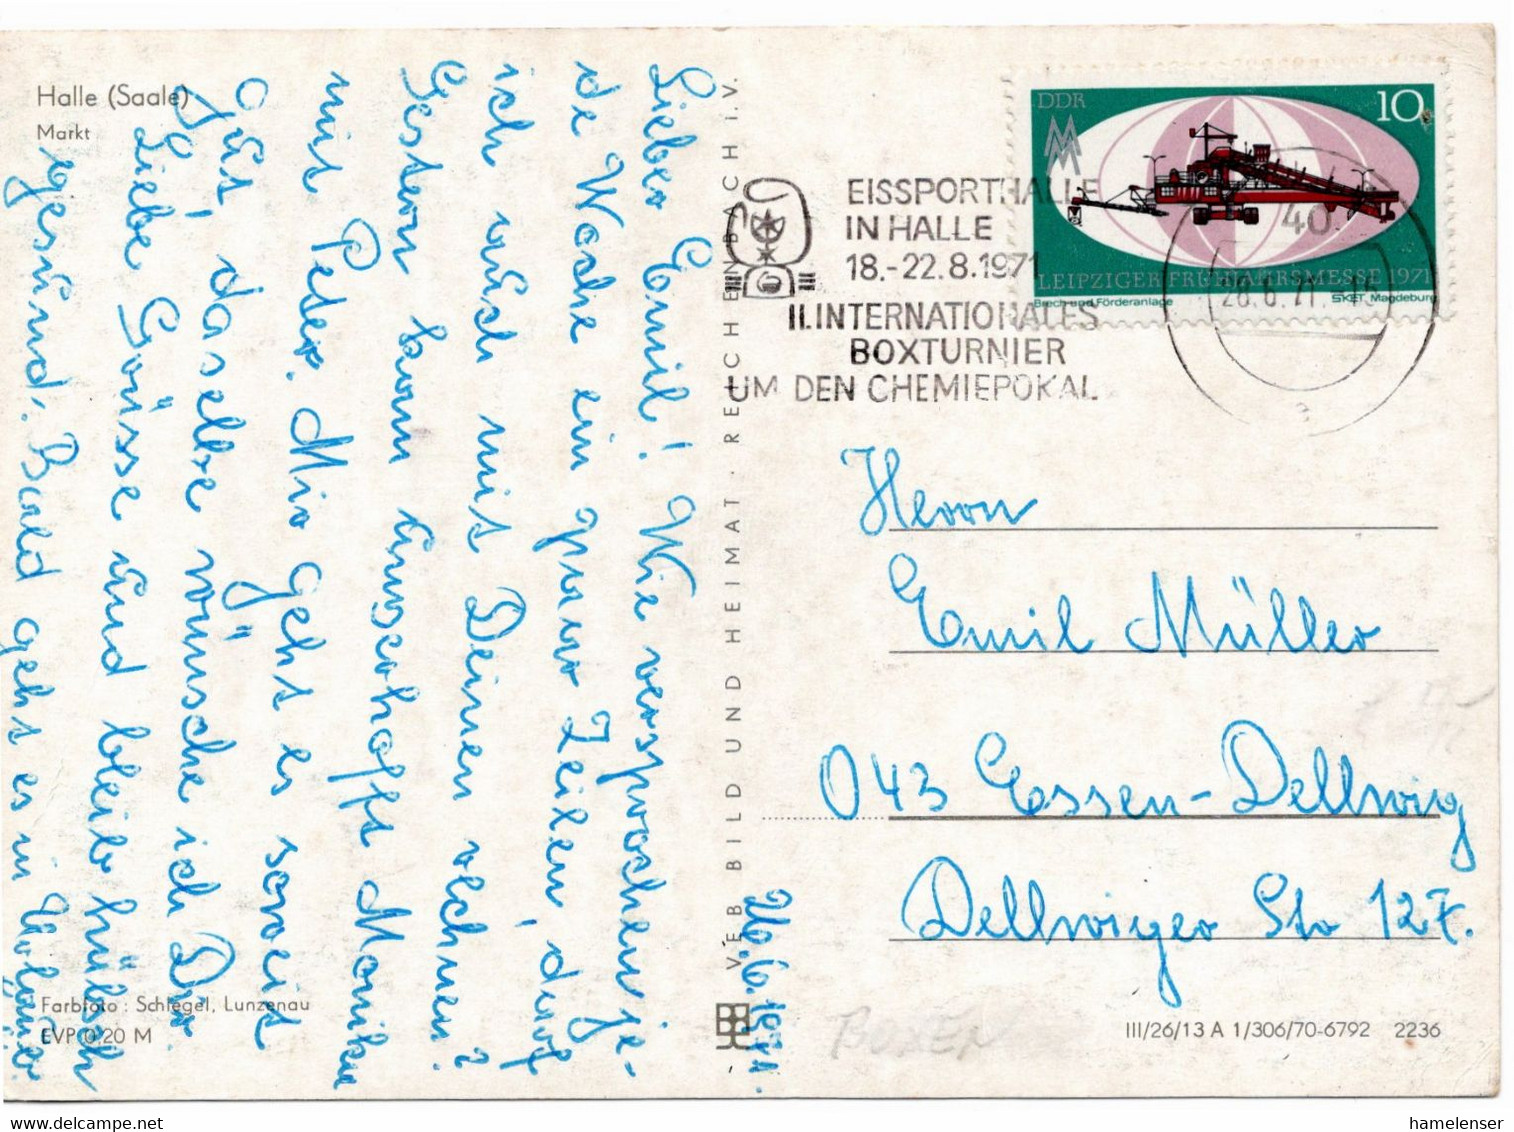 Halle (Saale)
Markt
Lieber Emil! Wie versprochen je-
de Woche ein paar Zeilen, darf
ich auch mit Deinen rechnen?
Gestern kam unverhofft Monika
mit Peter. Mir geht es soweit
gut, dasselbe wünsche ich Dir.
Liebe Grüsse und bleib hübsch
gesund. Bald geht es in
Farbfoto: Schlegel, Lunzenau
EVP 0,20 M
VEB BILD UND HEIMAT · REICHENBACH I. V.
DDR
10
LEIPZIGER FRÜHJAHRSMESSE 1971
Brech-und Förderanlage
SKET Magdeburg
EISSPORTHALLE
IN HALLE
18.-22.8.1971
II.INTERNATIONALES
BOXTURNIER
UM DEN CHEMIEPOKAL
40
28.6.71
Herrn
Emil Müller
043 Essen-Dellwig
Dellwiger Str 127.
BOXEN
III/26/13 A 1/306/70-6792 2236
hamelenser